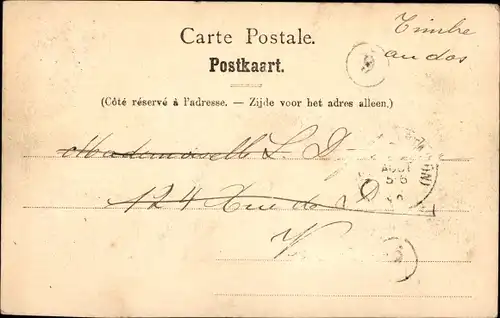 Carte Postale.
Postkaart.
Timbre
au dos
(Côté réservé à l'adresse. — Zijde voor het adres alleen.)
Mademoiselle L. D
124 Rue de
V
AOUT